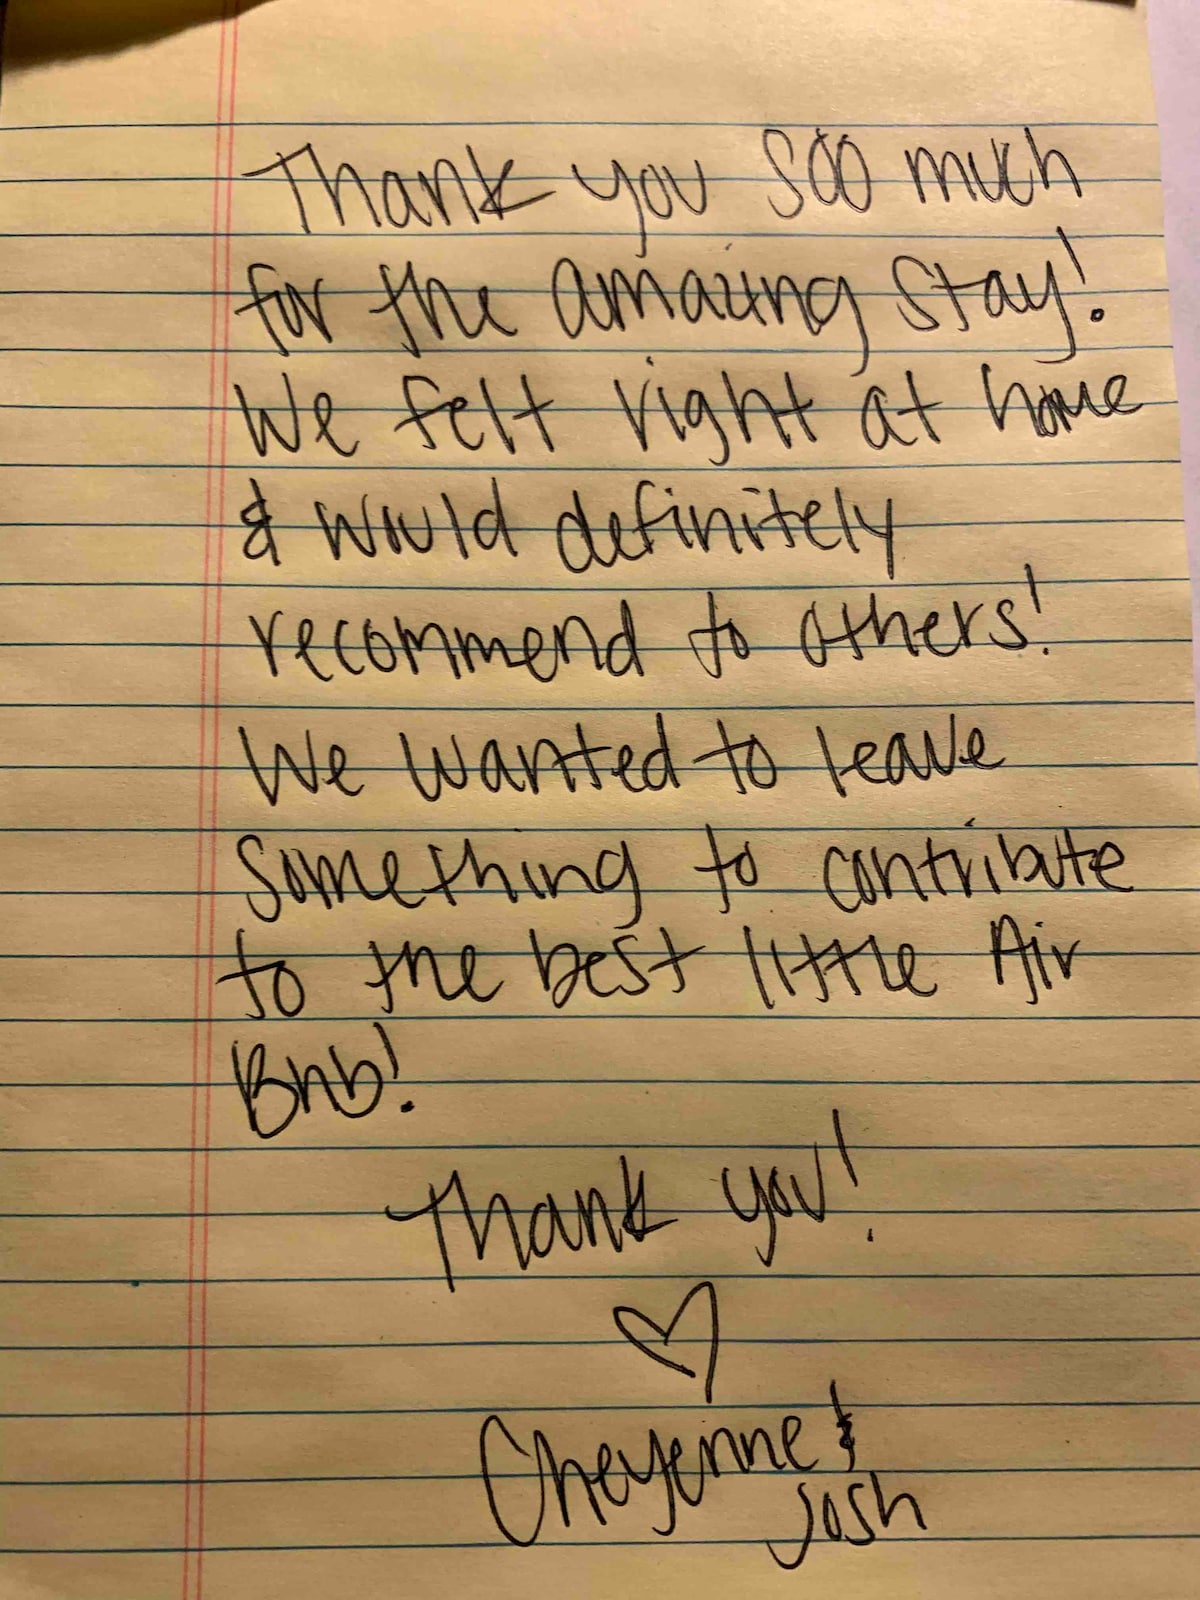 Thank you soo much
for the amazing stay!
We felt right at home
& would definitely
recommend to others!
We wanted to leave
something to contribute
to the best little Air
Bnb!
Thank you!
♡
Cheyenne &
Josh